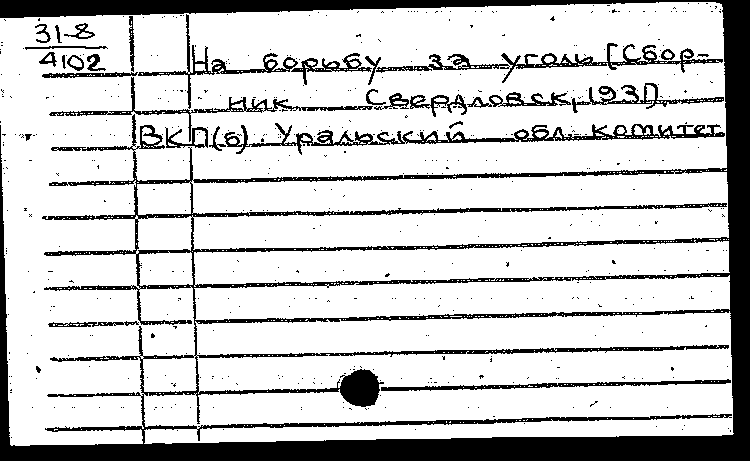 31-8
4102
На борьбу за уголь [Сбор-
ник Свердловск, 1931].
ВКП(б). Уральский обл. комитет